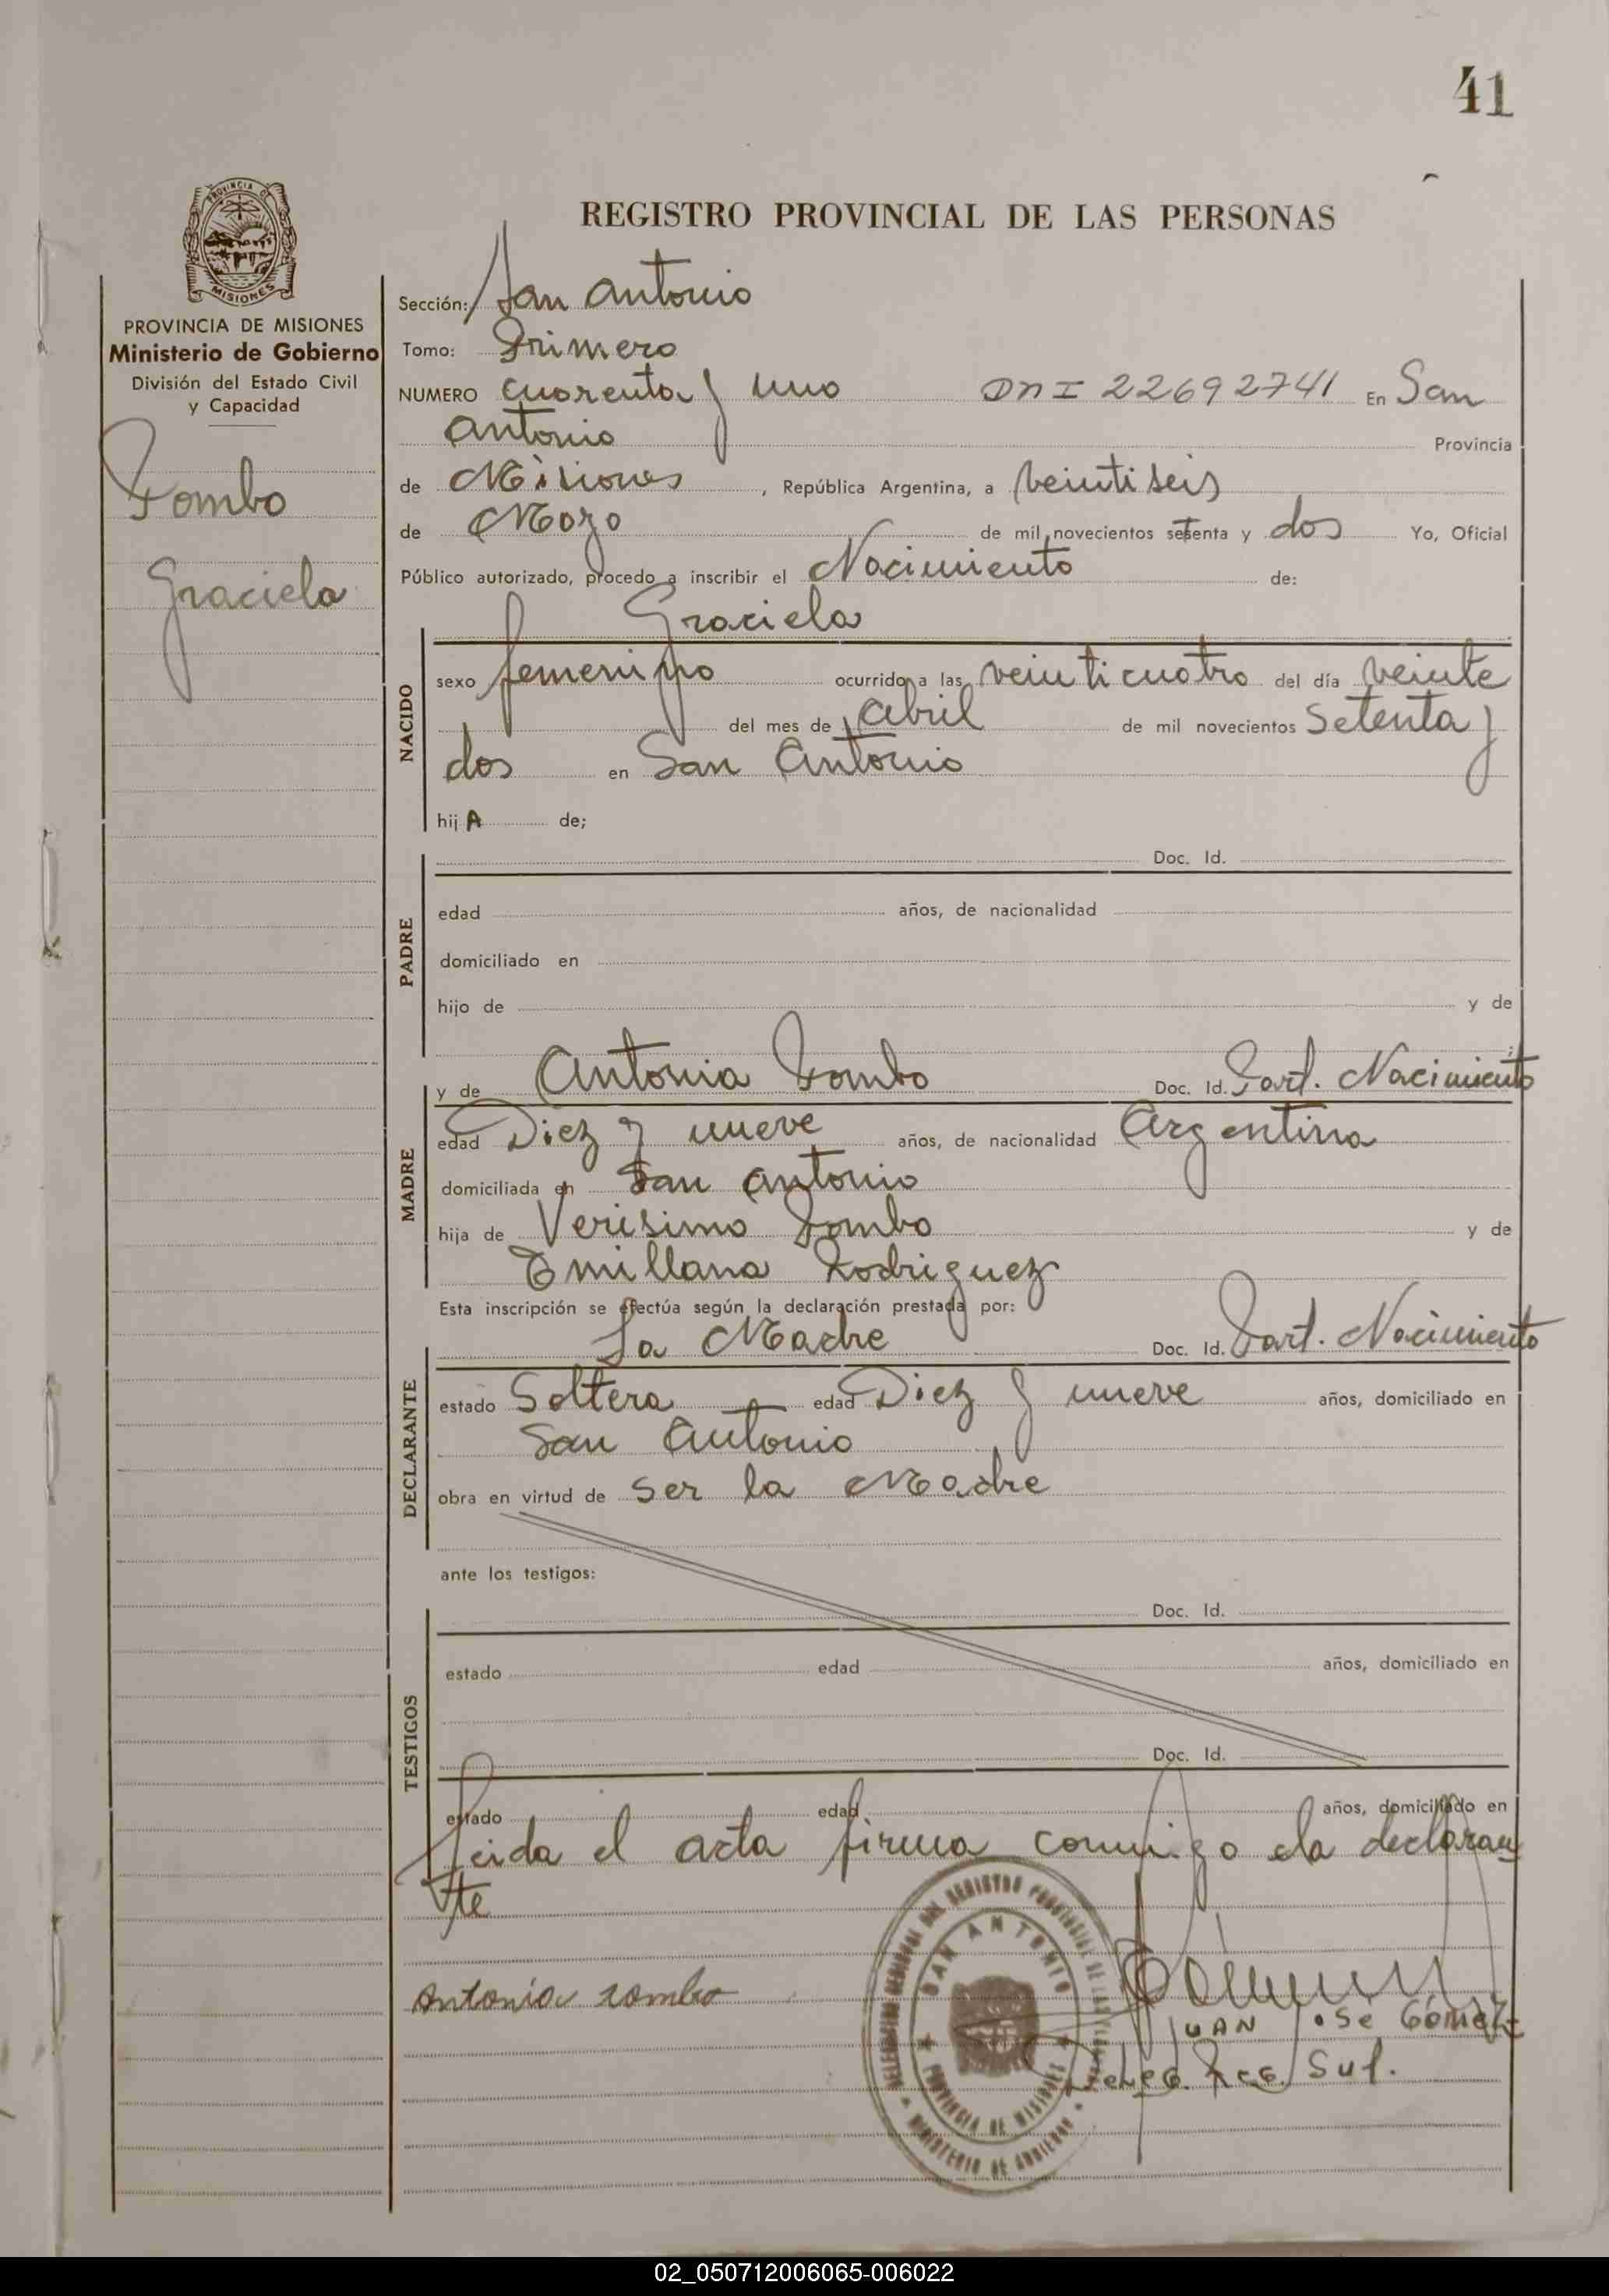 41
PROVINCIA DE
MISIONES
REGISTRO PROVINCIAL DE LAS PERSONAS
PROVINCIA DE MISIONES
Ministerio de Gobierno
División del Estado Civil
y Capacidad
Zombo
Graciela
Sección: San Antonio
Tomo: Primero
NUMERO cuarenta y uno DNI 22692741 En San
Antonio Provincia
de Misiones, República Argentina, a veintiseis
de Mayo de mil novecientos setenta y dos Yo, Oficial
Público autorizado, procedo a inscribir el Nacimiento de:
Graciela
NACIDO
sexo femenino ocurrido a las veinticuatro del día veinte
del mes de Abril de mil novecientos setenta y
dos en San Antonio
hijA de;
PADRE
Doc. Id.
edad años, de nacionalidad
domiciliado en
hijo de y de
MADRE
y de Antonia Zombo Doc. Id. Part. Nacimiento
edad Diez y nueve años, de nacionalidad Argentina
domiciliada en San Antonio
hija de Verisimo Zombo y de
Emillana Rodriguez
Esta inscripción se efectúa según la declaración prestada por:
DECLARANTE
La Madre Doc. Id. Part. Nacimiento
estado Soltera edad Diez y nueve años, domiciliado en
San Antonio
obra en virtud de ser la Madre
ante los testigos:
TESTIGOS
Doc. Id.
estado edad años, domiciliado en
Doc. Id.
estado edad años, domiciliado en
Leida el acta firma conmigo la declaran
te
Antonia zombo
SAN ANTONIO
PROVINCIA DE MISIONES
MINISTERIO DE GOBIERNO
JUAN José Gómez
Deleg. Reg. Sup.
02_050712006065-006022